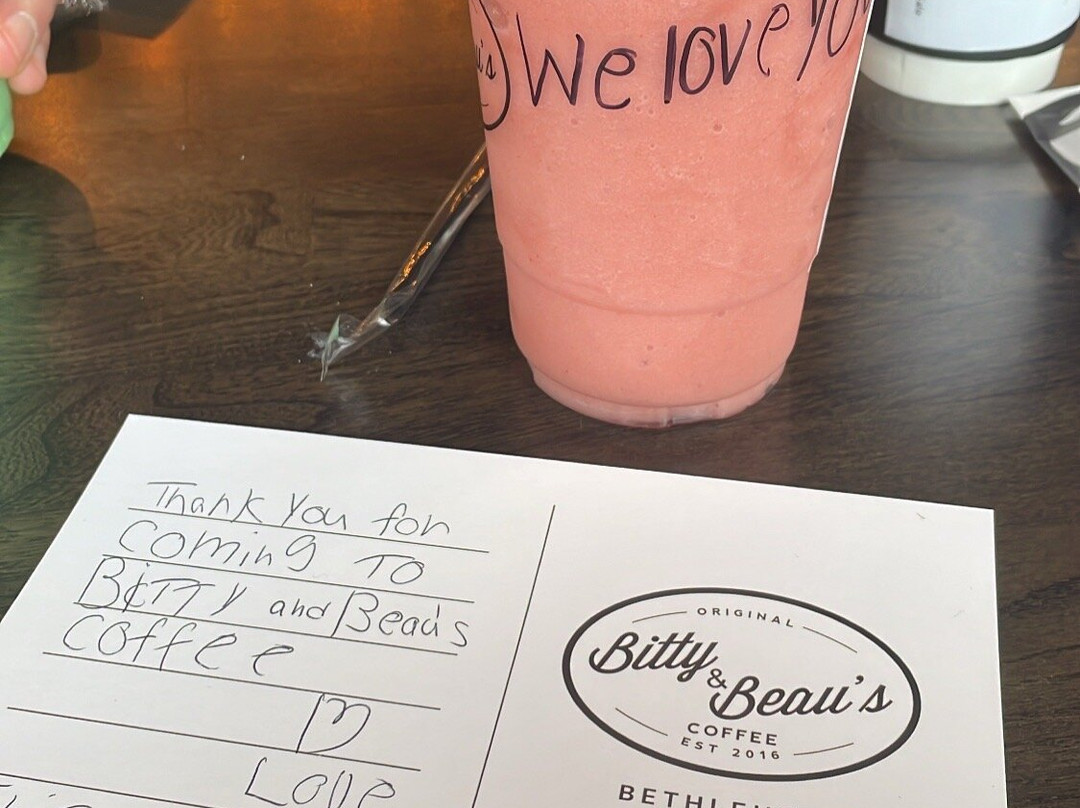 We love yo
Thank you for
coming To
BiTTY and Beau's
coffee
Love
ORIGINAL
Bitty
&
Beau's
COFFEE
EST 2016